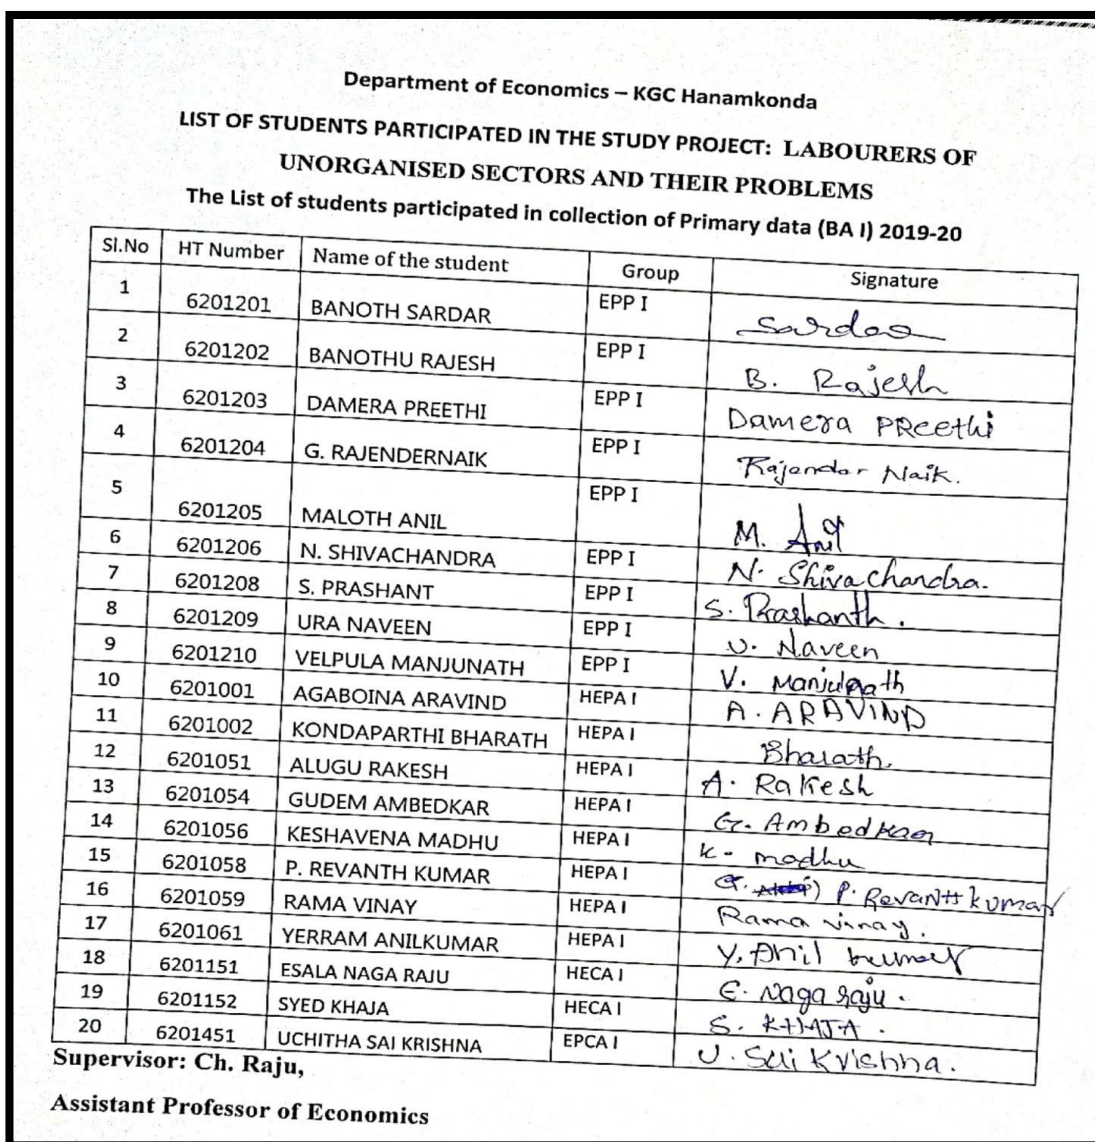 Department of Economics – KGC Hanamkonda
LIST OF STUDENTS PARTICIPATED IN THE STUDY PROJECT: LABOURERS OF
UNORGANISED SECTORS AND THEIR PROBLEMS
The List of students participated in collection of Primary data (BA I) 2019-20
Sl.No HT Number Name of the student Group Signature
1 6201201 BANOTH SARDAR EPP I Sardar
2 6201202 BANOTHU RAJESH EPP I B. Rajesh
3 6201203 DAMERA PREETHI EPP I Damera PReethi
4 6201204 G. RAJENDERNAIK EPP I Rajendar Naik.
5 6201205 MALOTH ANIL EPP I M. Anil
6 6201206 N. SHIVACHANDRA EPP I N. Shivachandra.
7 6201208 S. PRASHANT EPP I S. Prashanth.
8 6201209 URA NAVEEN EPP I U. Naveen
9 6201210 VELPULA MANJUNATH EPP I V. Manjunath
10 6201001 AGABOINA ARAVIND HEPA I A. ARAVIND
11 6201002 KONDAPARTHI BHARATH HEPA I Bharath.
12 6201051 ALUGU RAKESH HEPA I A. Rakesh
13 6201054 GUDEM AMBEDKAR HEPA I G. Ambedkar
14 6201056 KESHAVENA MADHU HEPA I K. madhu
15 6201058 P. REVANTH KUMAR HEPA I P. Revanth kumar
16 6201059 RAMA VINAY HEPA I Rama vinay.
17 6201061 YERRAM ANILKUMAR HEPA I Y. Anil kumar
18 6201151 ESALA NAGA RAJU HECA I E. Naga raju.
19 6201152 SYED KHAJA HECA I S. KHAJA.
20 6201451 UCHITHA SAI KRISHNA EPCA I U. Sai Krishna.
Supervisor: Ch. Raju,
Assistant Professor of Economics